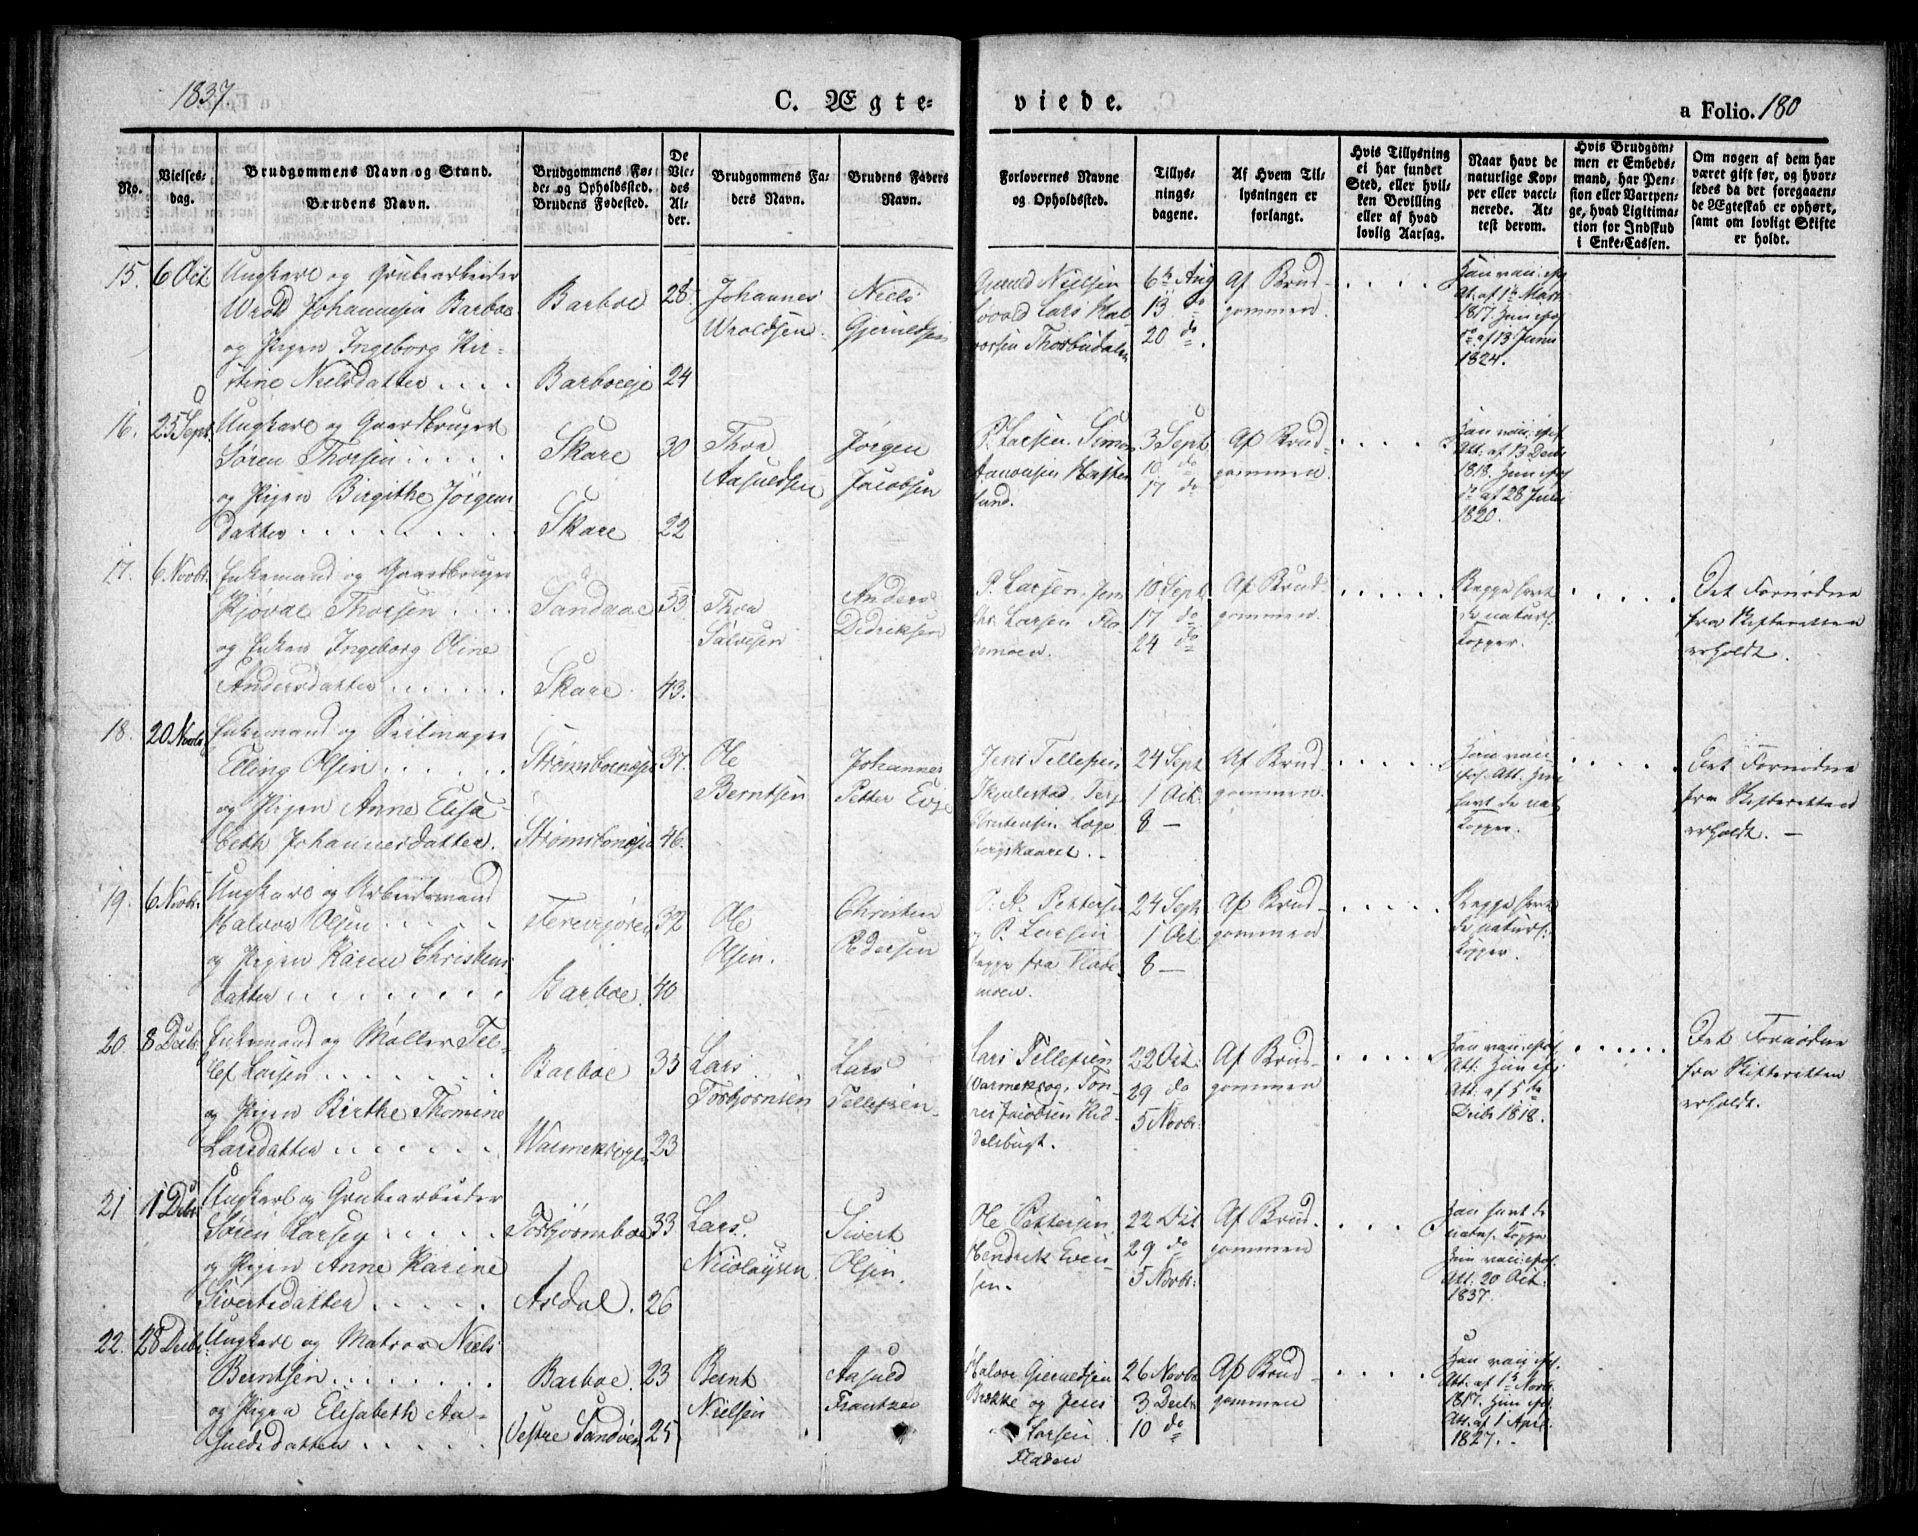 1837.
C. Ægte-
viede.
a Folio. 180
No.
Vielses-
dag.
Brudgommens Navn og Stand.
Brudens Navn.
Brudgommens Fø-
de- og Opholdssted.
Brudens Fødested.
De
Vie-
des
Al-
der.
Brudgommens Fa-
ders Navn.
Brudens Faders
Navn.
Forlovernes Navne
og Opholdssted.
Tillys-
nings-
dagene.
Af Hvem Til-
lysningen er
forlangt.
Hvis Tillysning
ei har fundet
Sted, eller hvil-
ken Bevilling
eller af hvad
lovlig Aarsag.
Naar havt de
naturlige Kop-
per eller vacci-
nerede. At-
test derom.
Hvis Brudgom-
men er Embeds-
mand, har Pen-
sion eller Vartpen-
ge, hvad Ligitima-
tion for Indskud
i Enke-Cassen.
Om nogen af dem har
været gift før, og hvor-
ledes da det foregaaen-
de Ægteskab er ophørt,
samt om lovligt Skifte
er holdt.
15. 6 Oct. Ungkarl og Grubearbeider
Wrold Johannesen Barboe
og Pigen Ingeborg Kir-
stine Nielsdatter
Barboe 28.
Barboeeje 24
Johannes
Wroldsen.
Niels
Gjeruldsen
Gjeruld Nielsen
Lars Hal-
vorsen
6te Aug
13 do
20 do.
Af Brud-
gommen.
Han vac: efter
At. af 1te Marts
1817. Hun efter
do af 13 Juni
1824.
16. 25 Sept. Ungkarl og Gaardbruger
Søren Thorsen
og Pigen Birgithe Jørgens
datter
Skare 30
Skare 22
Thor
Aasuldsen
Jørgen
Jacobsen
P. Larsen, Simon
Aanonsen
3 Sept.
10 do
17 do
Af Brud-
gommen.
Han vac: efter
Att. af 13 Decbr
1818. Hun efter
do af 28 Juli
1820.
17. 6 Novbr. Enkemand og Gaardbruger
Thorsen
og Enken Ingeborg Oline
Andersdatter
Sandaae 53
Skare. 43.
Thor
Salvesen
Anders
Didriksen
P. Larsen, Jens
Chr. Larsen Flo-
demoen.
10 Sept.
17 do
24 do
Af Brud-
gommen.
Begge havt
de naturl.
Kopper.
Det Fornødne
fra Skifteretten
erholdt.
18. 20 Novbr Enkemand og Seilmager
Elling Olsen
og Pigen Anne Elisa-
beth Johannesdatter.
Strømsboeneset 37.
Strømsboneset 46.
Ole
Berntsen
Johannes
Petter Evje
Jens Tellefsen
Skjulestad, Terje
Christensen Lage
bergskaaret.
24 Sept
1 Oct.
8 —
Af Brud-
gommen.
Han vac:
efter Att. Hun
havt de nat.
Kopper.
Det Fornødne
fra Skifteretten
erholdt. —
19. 6 Novbr. Ungkarl og Arbeidsmand
Halvor Olsen
og Pigen Karen Christens
datter
32
Barboe. 40
Ole
Olsen.
Christen
Pedersen
Pettersen
og P. Larsen
begge fra Flode-
moen.
24 Sept
1 Oct.
8 —
Af Brud-
gommen
Begge havt
de naturl:
Kopper.
20. 8 Decbr. Enkemand og Møller Tel-
lef Larsen
og Pigen Birthe Thomine
Larsdatter
Barboe 35
Warmekrogen 23
Lars
Torbjørnsen
Lars
Tellefsen.
Lars Tellefsen
Warmekrog, Tøn-
nes Jacobsen Kid-
delsbugt.
22 Oct.
29 do
5 Novbr.
Af Brud-
gommen
Han vac: efter
Att. Hun efter
Att. af 5te
Decbr 1818.
Det Fornødne
fra Skifteretten
erholdt.
21 11 Decbr Ungkarl og Grubearbeider
Søren Larsen
og Pigen Anne Karine
Sivertsdatter
Torbjørnsboe 33
Asdal. 26
Lars
Nicolaysen.
Sivert
Olsen.
Ole Pettersen
Hendrik Even-
sen.
22 Oct
29 do
5 Novbr:
Af Brud-
gommen
Han havt de
naturl. Kopper
Hun vac: efter
Att: 20 Oct.
1837.
22. 28 Decbr. Ungkarl og Matros Niels
Berntsen
og Pigen Elisabeth Aa-
suldsdatter
Barboe. 23
Vestre Sandøen 25
Bernt
Nielsen
Aasuld
Frantzen
Halvor Gjeruldsen
Brække og Jens
Larsen
Fladen
26 Novbr
3 Decbr.
10 do
Af Brud-
gommen
Han vac: efter
Att. af 1te Novbr.
1817. Hun efter
Att. af 1 April
1827.